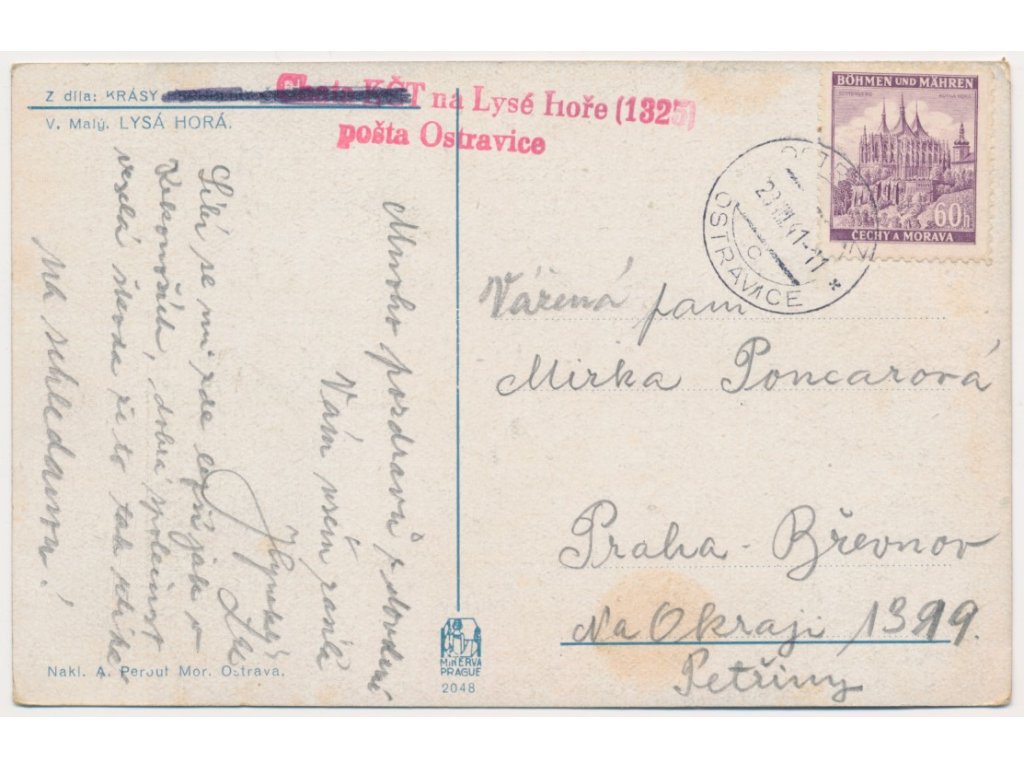 Z díla: KRÁSY
V. Malý. LYSÁ HORÁ.
Chata KČT na Lysé Hoře (1325)
pošta Ostravice
BÖHMEN UND MÄHREN
60h
ČECHY A MORAVA
OSTRAVICE
C
Mnoho pozdravů z dovolené
Vám všem zasílá
Hynek
Líbí se mi zde jako v
Krkonoších, dobrá společnost
veselá škoda že to tak krátké
na shledanou!
Vážená paní
Mirka Poncarová
Praha - Břevnov
Na Okraji 1399.
Petřiny
Nakl. A. Perout Mor. Ostrava.
MINERVA
PRAGUE
2048